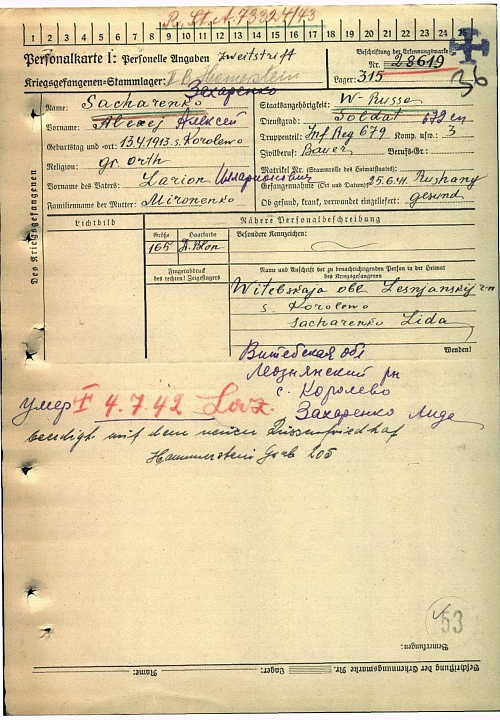 R. St. A. 73324/43
1 2 3 4 5 6 7 8 9 10 11 12 13 14 15 16 17 18 19 20 21 22 23 24 25
Personalkarte I: Personelle Angaben Zweitstrift
Beschriftung der Erkennungsmarke
Nr. 28619
Kriegsgefangenen-Stammlager: II B Hamerstein
Lager: 315
36
Захаренко
Des Kriegsgefangenen
Name: Sacharenko
Staatsangehörigkeit: W-Russe
Vorname: Alexej Алексей
Dienstgrad: Soldat
Truppenteil: Inf Reg 679 Komp. usw.: 3
Geburtstag und -ort: 13.4.1913 s. Korolewo
Zivilberuf: Bauer Berufs-Gr.:
Religion: gr. orth
Matrikel Nr. (Stammrolle des Heimatstaates):
Vorname des Vaters: Larion Илларионович
Gefangennahme (Ort und Datum): 25.6.41 Rushany
Familienname der Mutter: Mironenko
Ob gesund, krank, verwundet eingeliefert: gesund
Lichtbild
Nähere Personalbeschreibung
Größe
Haarfarbe
Besondere Kennzeichen:
165
d. Blon
Fingerabdruck
des rechten! Zeigefingers
Name und Anschrift der zu benachrichtigenden Person in der Heimat
des Kriegsgefangenen
Witebskaja obl Lesnjanskij r-n
s. Korolewo
Sacharenko Lida
Wenden!
Витебская обл
Лёознянский рн
с. Королево
Захаренко Лида
умер
4.7.42 Laz.
beerdigt auf dem neuen Russenfriedhof
Hammerstein Grab 205
53
Bemerkungen:
Beschriftung der Erkennungsmarke Nr. Lager: Name: